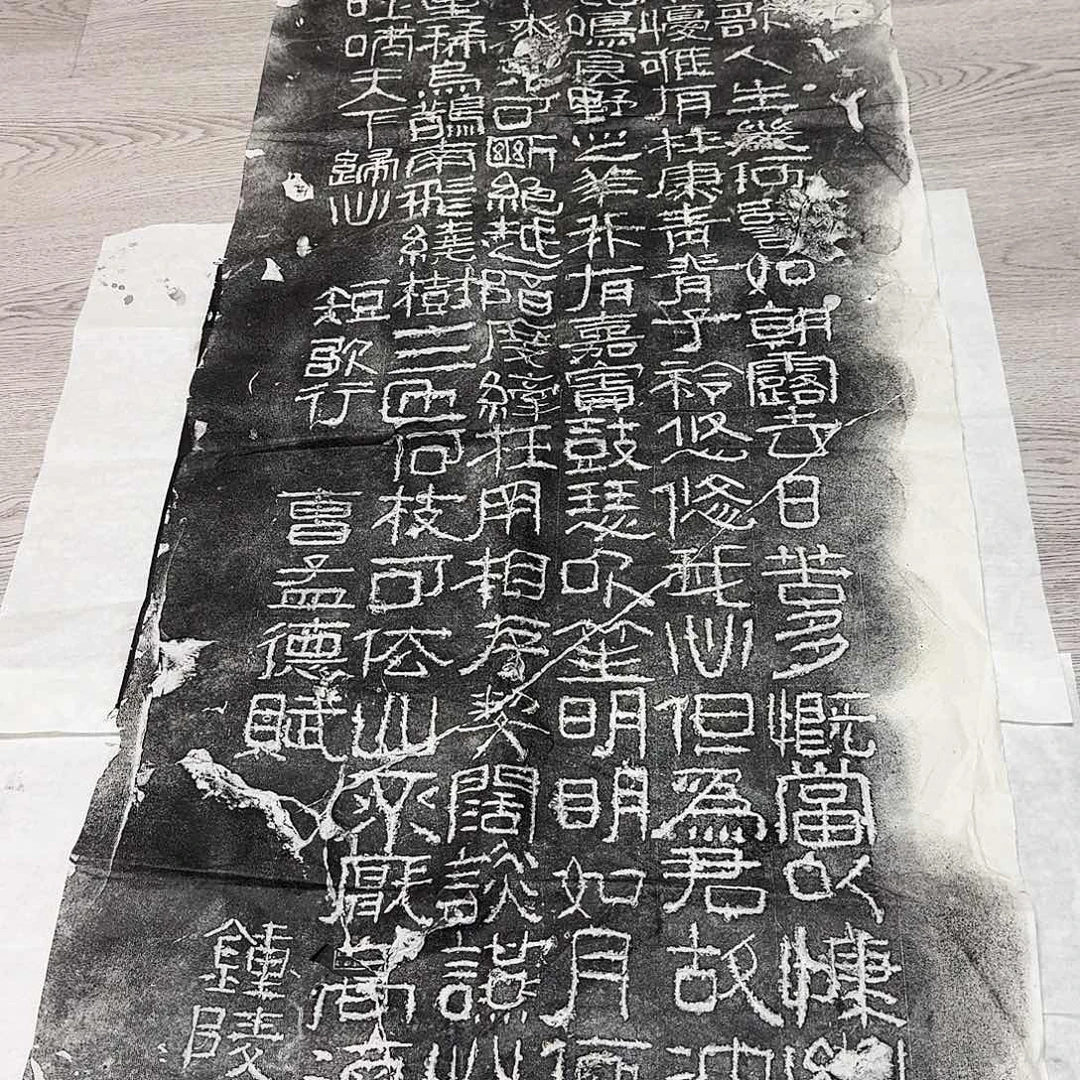 歌人生幾何譬如朝露去日苦多慨當以慷
憂唯有杜康青青子衿悠悠我心但為君故沈
鳴食野之苹我有嘉賓鼓瑟吹笙明明如月何
來不可斷絕越陌度阡枉用相存契闊談讌心
星稀烏鵲南飛繞樹三匝何枝可依山不厭高海
吐哺天下歸心
短歌行
曹孟德賦
鍾陵